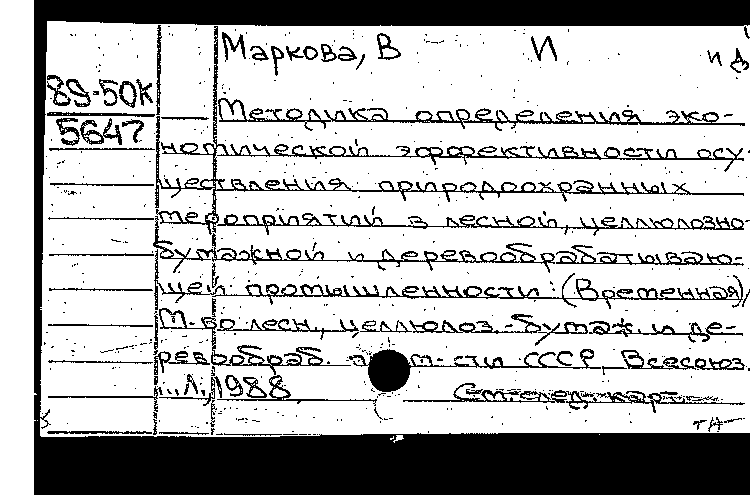 Маркова, В И
89-50К
5647
Методика определения эко-
номической эффективности осу-
ществления природоохранных
мероприятий в лесной, целлюлозно-
бумажной и деревообрабатываю-
щей промышленности: (Временная)/
М-во лесн., целлюлоз.-бумаж. и де-
ревообраб. пром-сти СССР, Всесоюз.
... Л., 1988
См. след. карт.